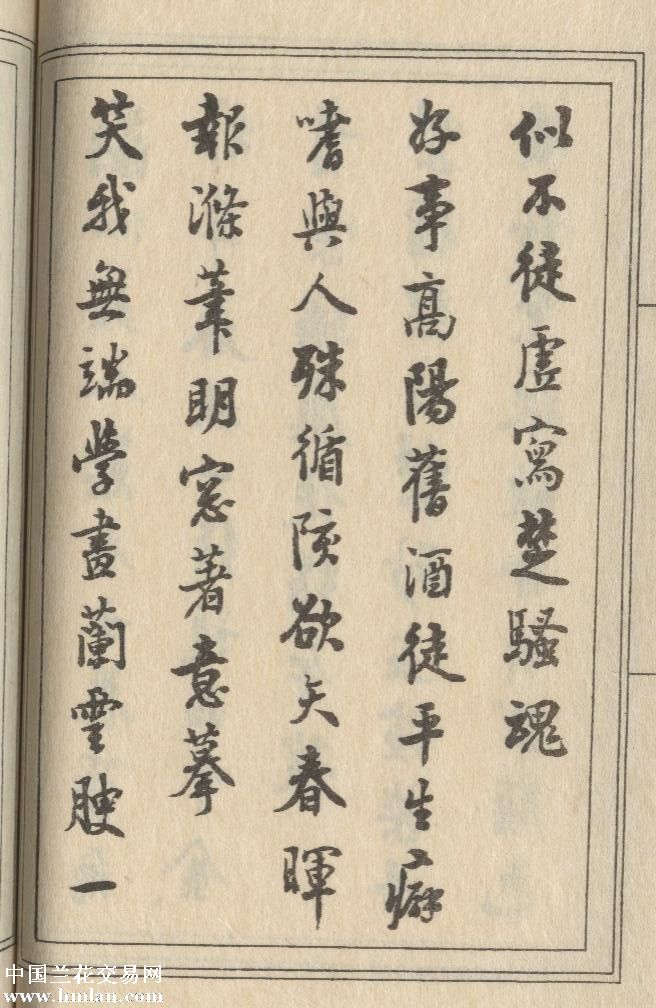 似不徒虛寫楚騷魂
好事高陽舊酒徒平生癖
嗜與人殊循陔欲矢春暉
報滌筆明窗著意摹
笑我無端學畫蘭雪腴一
中国兰花交易网
www.hmlan.com